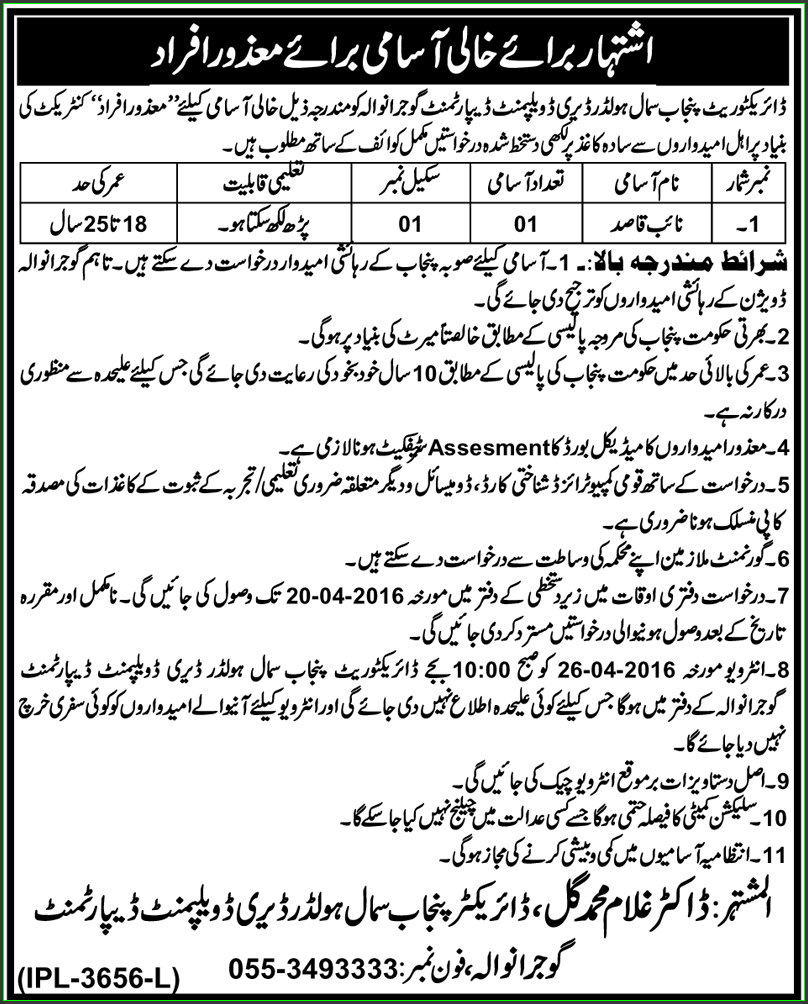 اشتہار برائے خالی آسامی برائے معذور افراد
ڈائریکٹوریٹ پنجاب سمال ہولڈر ڈیری ڈویلپمنٹ ڈیپارٹمنٹ گوجرانوالہ کو مندرجہ ذیل خالی آسامی کیلئے ”معذور افراد“ کنٹریکٹ کی
بنیاد پر اہل امیدواروں سے سادہ کاغذ پر لکھی دستخط شدہ درخواستیں مکمل کوائف کے ساتھ مطلوب ہیں۔
نمبر شمار نام آسامی تعداد آسامی سکیل نمبر تعلیمی قابلیت عمر کی حد
1۔ نائب قاصد 01 01 پڑھ لکھ سکتا ہو۔ 18 تا 25 سال
شرائط مندرجہ بالا:۔ 1۔ آسامی کیلئے صوبہ پنجاب کے رہائشی امیدوار درخواست دے سکتے ہیں۔ تاہم گوجرانوالہ
ڈویژن کے رہائشی امیدواروں کو ترجیح دی جائے گی۔
2۔ بھرتی حکومت پنجاب کی مروجہ پالیسی کے مطابق خالصتاً میرٹ کی بنیاد پر ہوگی۔
3۔ عمر کی بالائی حد میں حکومت پنجاب کی پالیسی کے مطابق 10 سال خودبخود کی رعایت دی جائے گی جس کیلئے علیحدہ سے منظوری
درکار نہ ہے۔
4۔ معذور امیدواروں کا میڈیکل بورڈ کا Assesment سرٹیفکیٹ ہونا لازمی ہے۔
5۔ درخواست کے ساتھ قومی کمپیوٹرائزڈ شناختی کارڈ، ڈومیسائل و دیگر متعلقہ ضروری تعلیمی/تجربہ کے ثبوت کے کاغذات کی مصدقہ
کاپی منسلک ہونا ضروری ہے۔
6۔ گورنمنٹ ملازمین اپنے محکمہ کی وساطت سے درخواست دے سکتے ہیں۔
7۔ درخواست دفتری اوقات میں زیر دستخطی کے دفتر میں مورخہ 20-04-2016 تک وصول کی جائیں گی۔ نامکمل اور مقررہ
تاریخ کے بعد وصول ہونیوالی درخواستیں مسترد کردی جائیں گی۔
8۔ انٹرویو مورخہ 26-04-2016 کو صبح 10:00 بجے ڈائریکٹوریٹ پنجاب سمال ہولڈر ڈیری ڈویلپمنٹ ڈیپارٹمنٹ
گوجرانوالہ کے دفتر میں ہوگا جس کیلئے کوئی علیحدہ اطلاع نہیں دی جائے گی اور انٹرویو کیلئے آنیوالے امیدواروں کو کوئی سفری خرچ
نہیں دیا جائے گا۔
9۔ اصل دستاویزات بر موقع انٹرویو چیک کی جائیں گی۔
10۔ سلیکشن کمیٹی کا فیصلہ حتمی ہوگا جسے کسی عدالت میں چیلنج نہیں کیا جاسکے گا۔
11۔ انتظامیہ آسامیوں میں کمی و بیشی کرنے کی مجاز ہوگی۔
المشتہر: ڈاکٹر غلام محمد گل، ڈائریکٹر پنجاب سمال ہولڈر ڈیری ڈویلپمنٹ ڈیپارٹمنٹ
گوجرانوالہ، فون نمبر: 055-3493333
(IPL-3656-L)